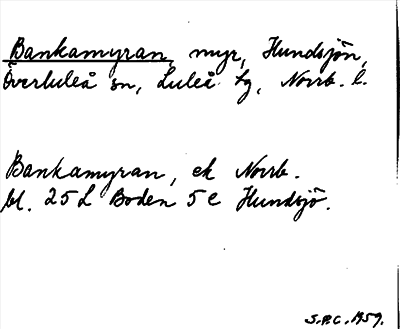 Bankamyran, myr, Hundsjön,
Överluleå sn, Luleå tg, Norrb. l.
Bankamyran, ek Norrb.
bl. 25 L Boden 5 c Hundsjö.
S.P.C. 1959.